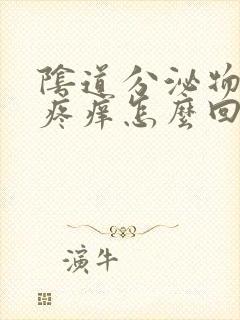 陰道分泌物
疼痒怎麼回
濱牛